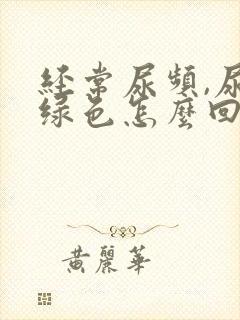 經常尿頻,尿
绿色怎麼回
黃麗華